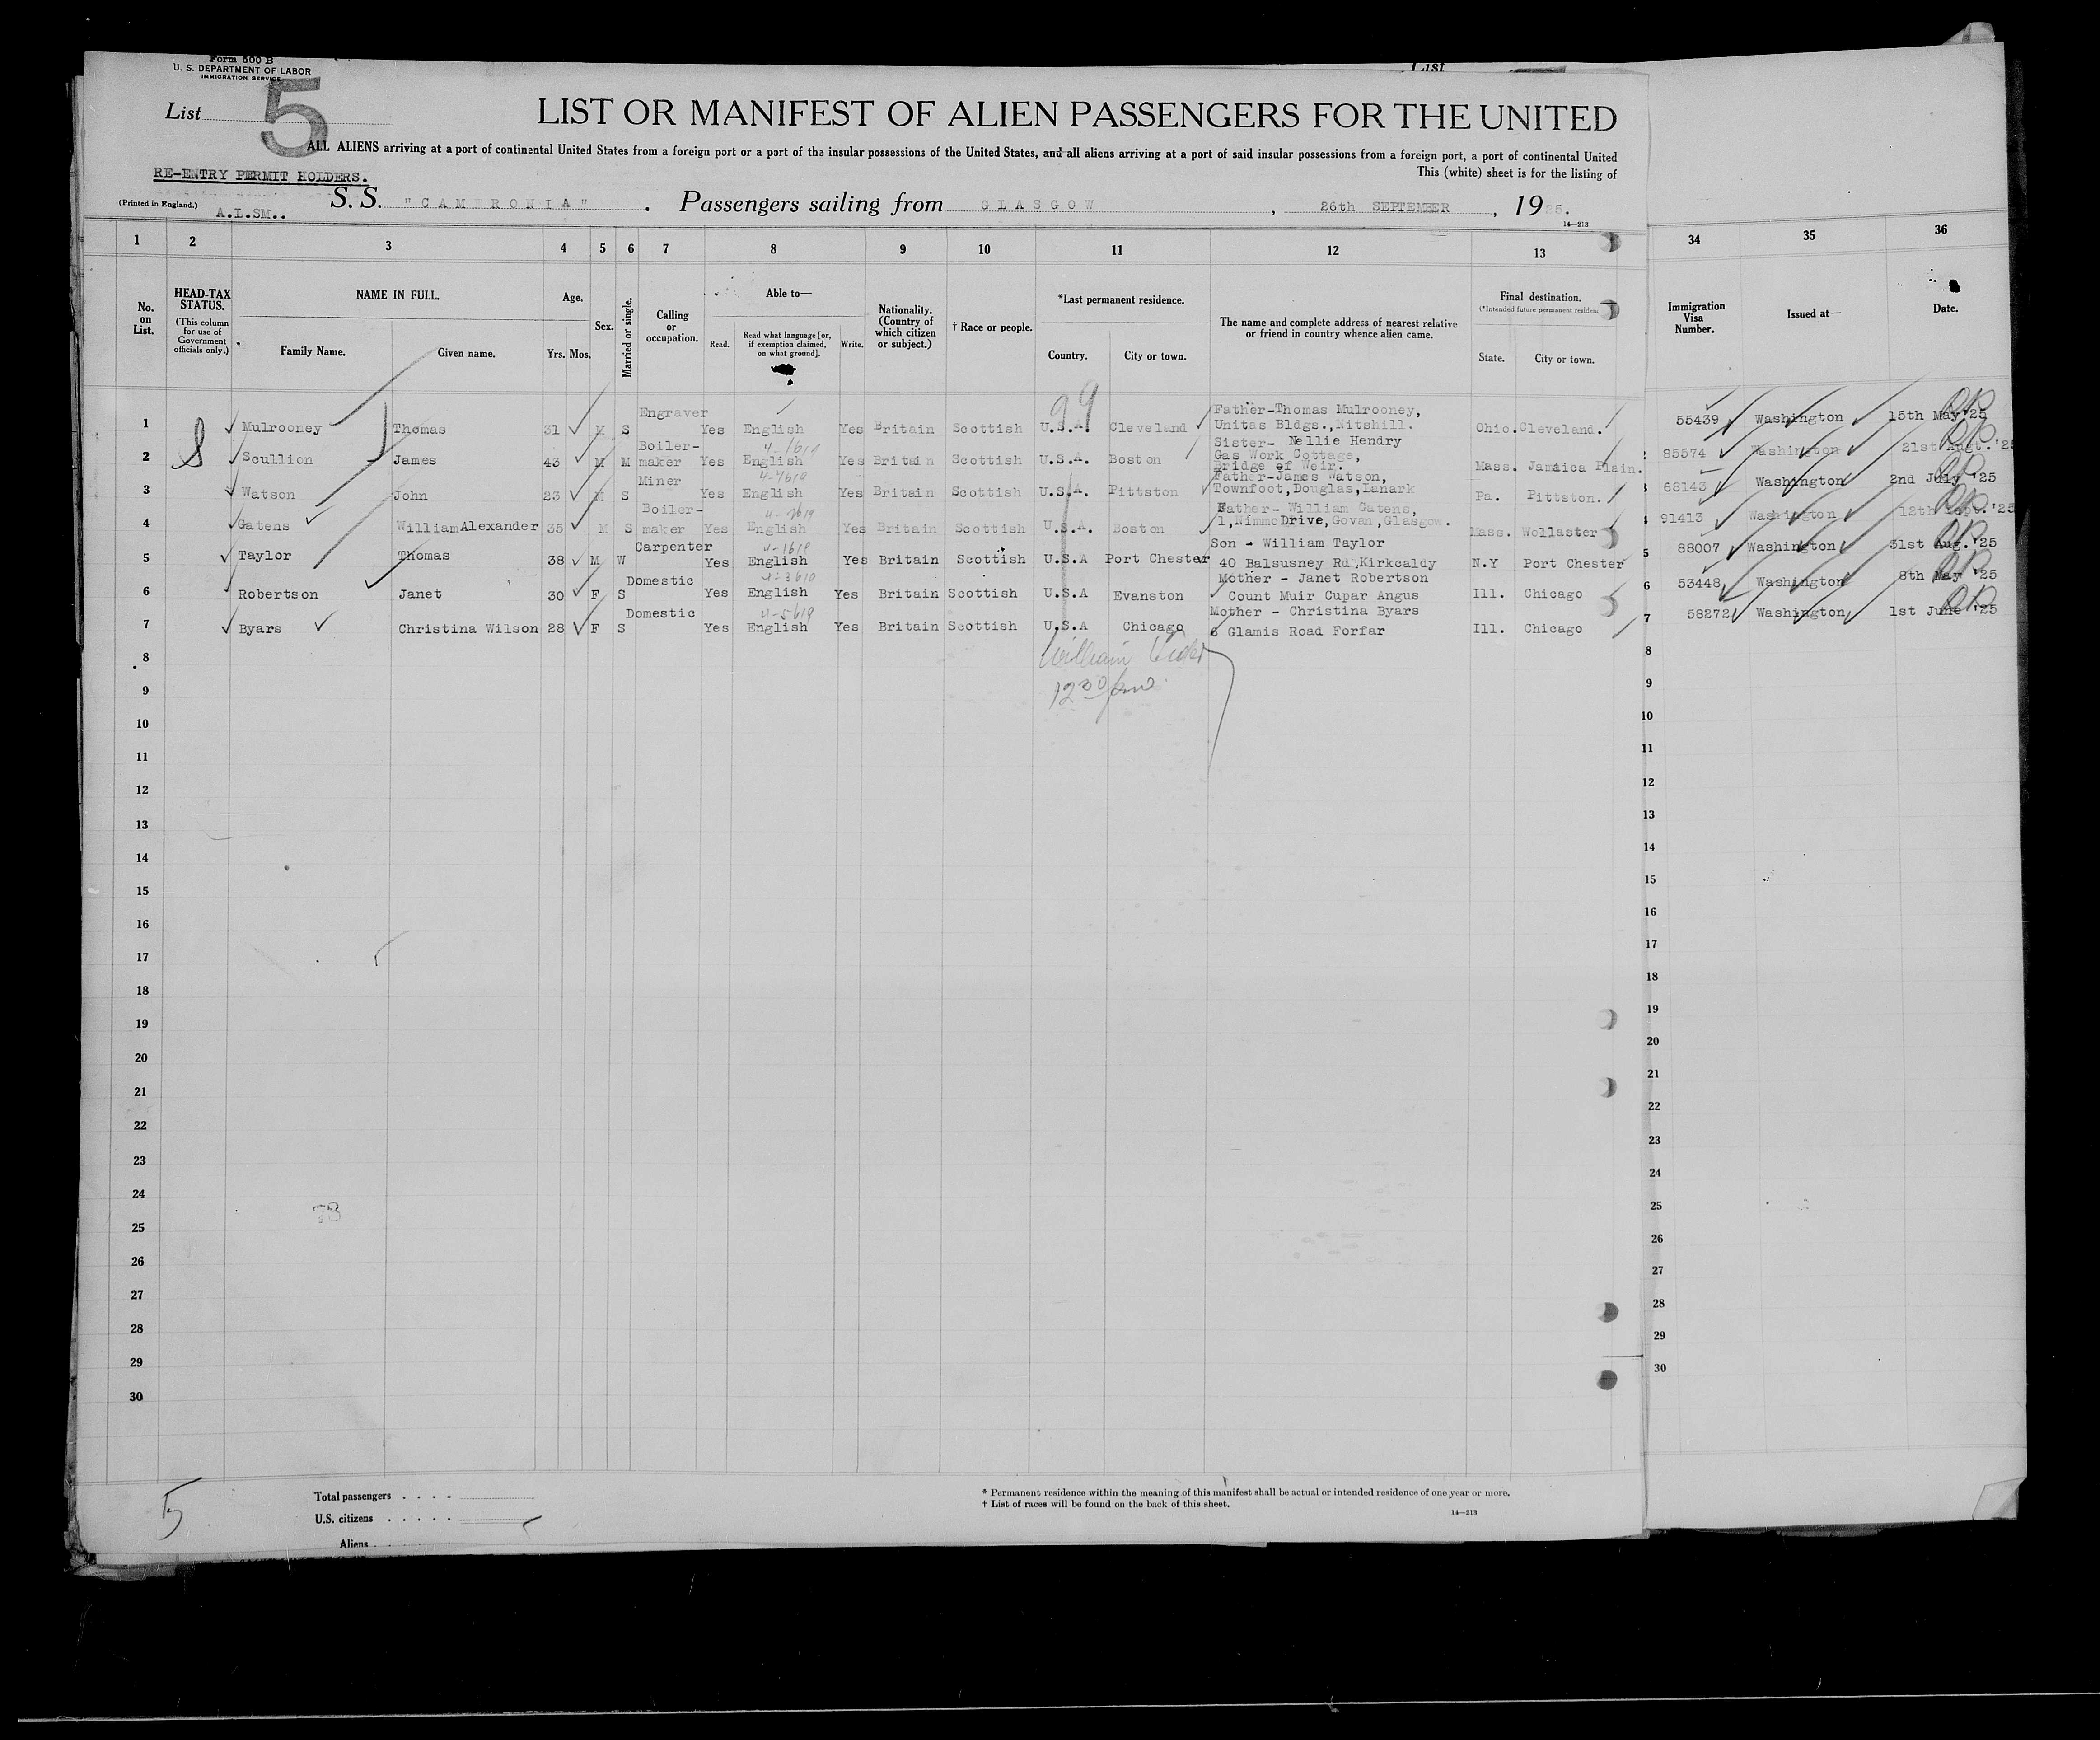 Form 500 B
U. S. DEPARTMENT OF LABOR
IMMIGRATION SERVICE
List
List 5
LIST OR MANIFEST OF ALIEN PASSENGERS FOR THE UNITED
ALL ALIENS arriving at a port of continental United States from a foreign port or a port of the insular possessions of the United States, and all aliens arriving at a port of said insular possessions from a foreign port, a port of continental United
This (white) sheet is for the listing of
RE-ENTRY PERMIT HOLDERS.
(Printed in England.) A.L.SM.. S. S. "CAMERONIA". Passengers sailing from GLASGOW, 26th SEPTEMBER, 1925.
14—213
1 2 3 4 5 6 7 8 9 10 11 12 13 34 35 36
No. on List.
HEAD-TAX STATUS.
(This column for use of Government officials only.)
NAME IN FULL.
Family Name. Given name.
Age.
Yrs. Mos.
Sex.
Married or single.
Calling or occupation.
Able to—
Read. Read what language [or, if exemption claimed, on what ground]. Write.
Nationality. (Country of which citizen or subject.)
† Race or people.
*Last permanent residence.
Country. City or town.
The name and complete address of nearest relative or friend in country whence alien came.
Final destination.
(*Intended future permanent residence
State. City or town.
Immigration Visa Number.
Issued at—
Date.
99
1 Mulrooney Thomas 31 M S Engraver Yes English Yes Britain Scottish U.S.A. Cleveland Father-Thomas Mulrooney, Unitas Bldgs.,Nitshill. Ohio. Cleveland. 55439 Washington 15th May'25
2 Scullion James 43 M M Boiler-maker Yes English Yes Britain Scottish U.S.A. Boston Sister- Nellie Hendry Gas Work Cottage, Bridge of Weir. Mass. Jamaica Plain. 85574 Washington 21st Augt.'25
3 Watson John 23 M S Miner Yes English Yes Britain Scottish U.S.A. Pittston Father-James Watson, Townfoot,Douglas,Lanark Pa. Pittston. 68143 Washington 2nd July '25
4 Gatens William Alexander 35 M S Boiler-maker Yes English Yes Britain Scottish U.S.A. Boston Father- William Gatens, 1,Nimmo Drive,Govan,Glasgow. Mass. Wollaster 91413 Washington 12th Sept.'25
5 Taylor Thomas 38 M W Carpenter Yes English Yes Britain Scottish U.S.A Port Chester Son - William Taylor 40 Balsusney Rd.,Kirkcaldy N.Y Port Chester 88007 Washington 31st Aug.'25
6 Robertson Janet 30 F S Domestic Yes English Yes Britain Scottish U.S.A Evanston Mother - Janet Robertson Count Muir Cupar Angus Ill. Chicago 53448 Washington 8th May '25
7 Byars Christina Wilson 28 F S Domestic Yes English Yes Britain Scottish U.S.A Chicago Mother - Christina Byars 6 Glamis Road Forfar Ill. Chicago 58272 Washington 1st June '25
8 William 8
9 9
10 10
11 11
12 12
13 13
14 14
15 15
16 16
17 17
18 18
19 19
20 20
21 21
22 22
23 23
24 24
25 25
26 26
27 27
28 28
29 29
30 30
5
Total passengers . . . .
U.S. citizens . . . . .
Aliens
* Permanent residence within the meaning of this manifest shall be actual or intended residence of one year or more.
† List of races will be found on the back of this sheet.
14—213